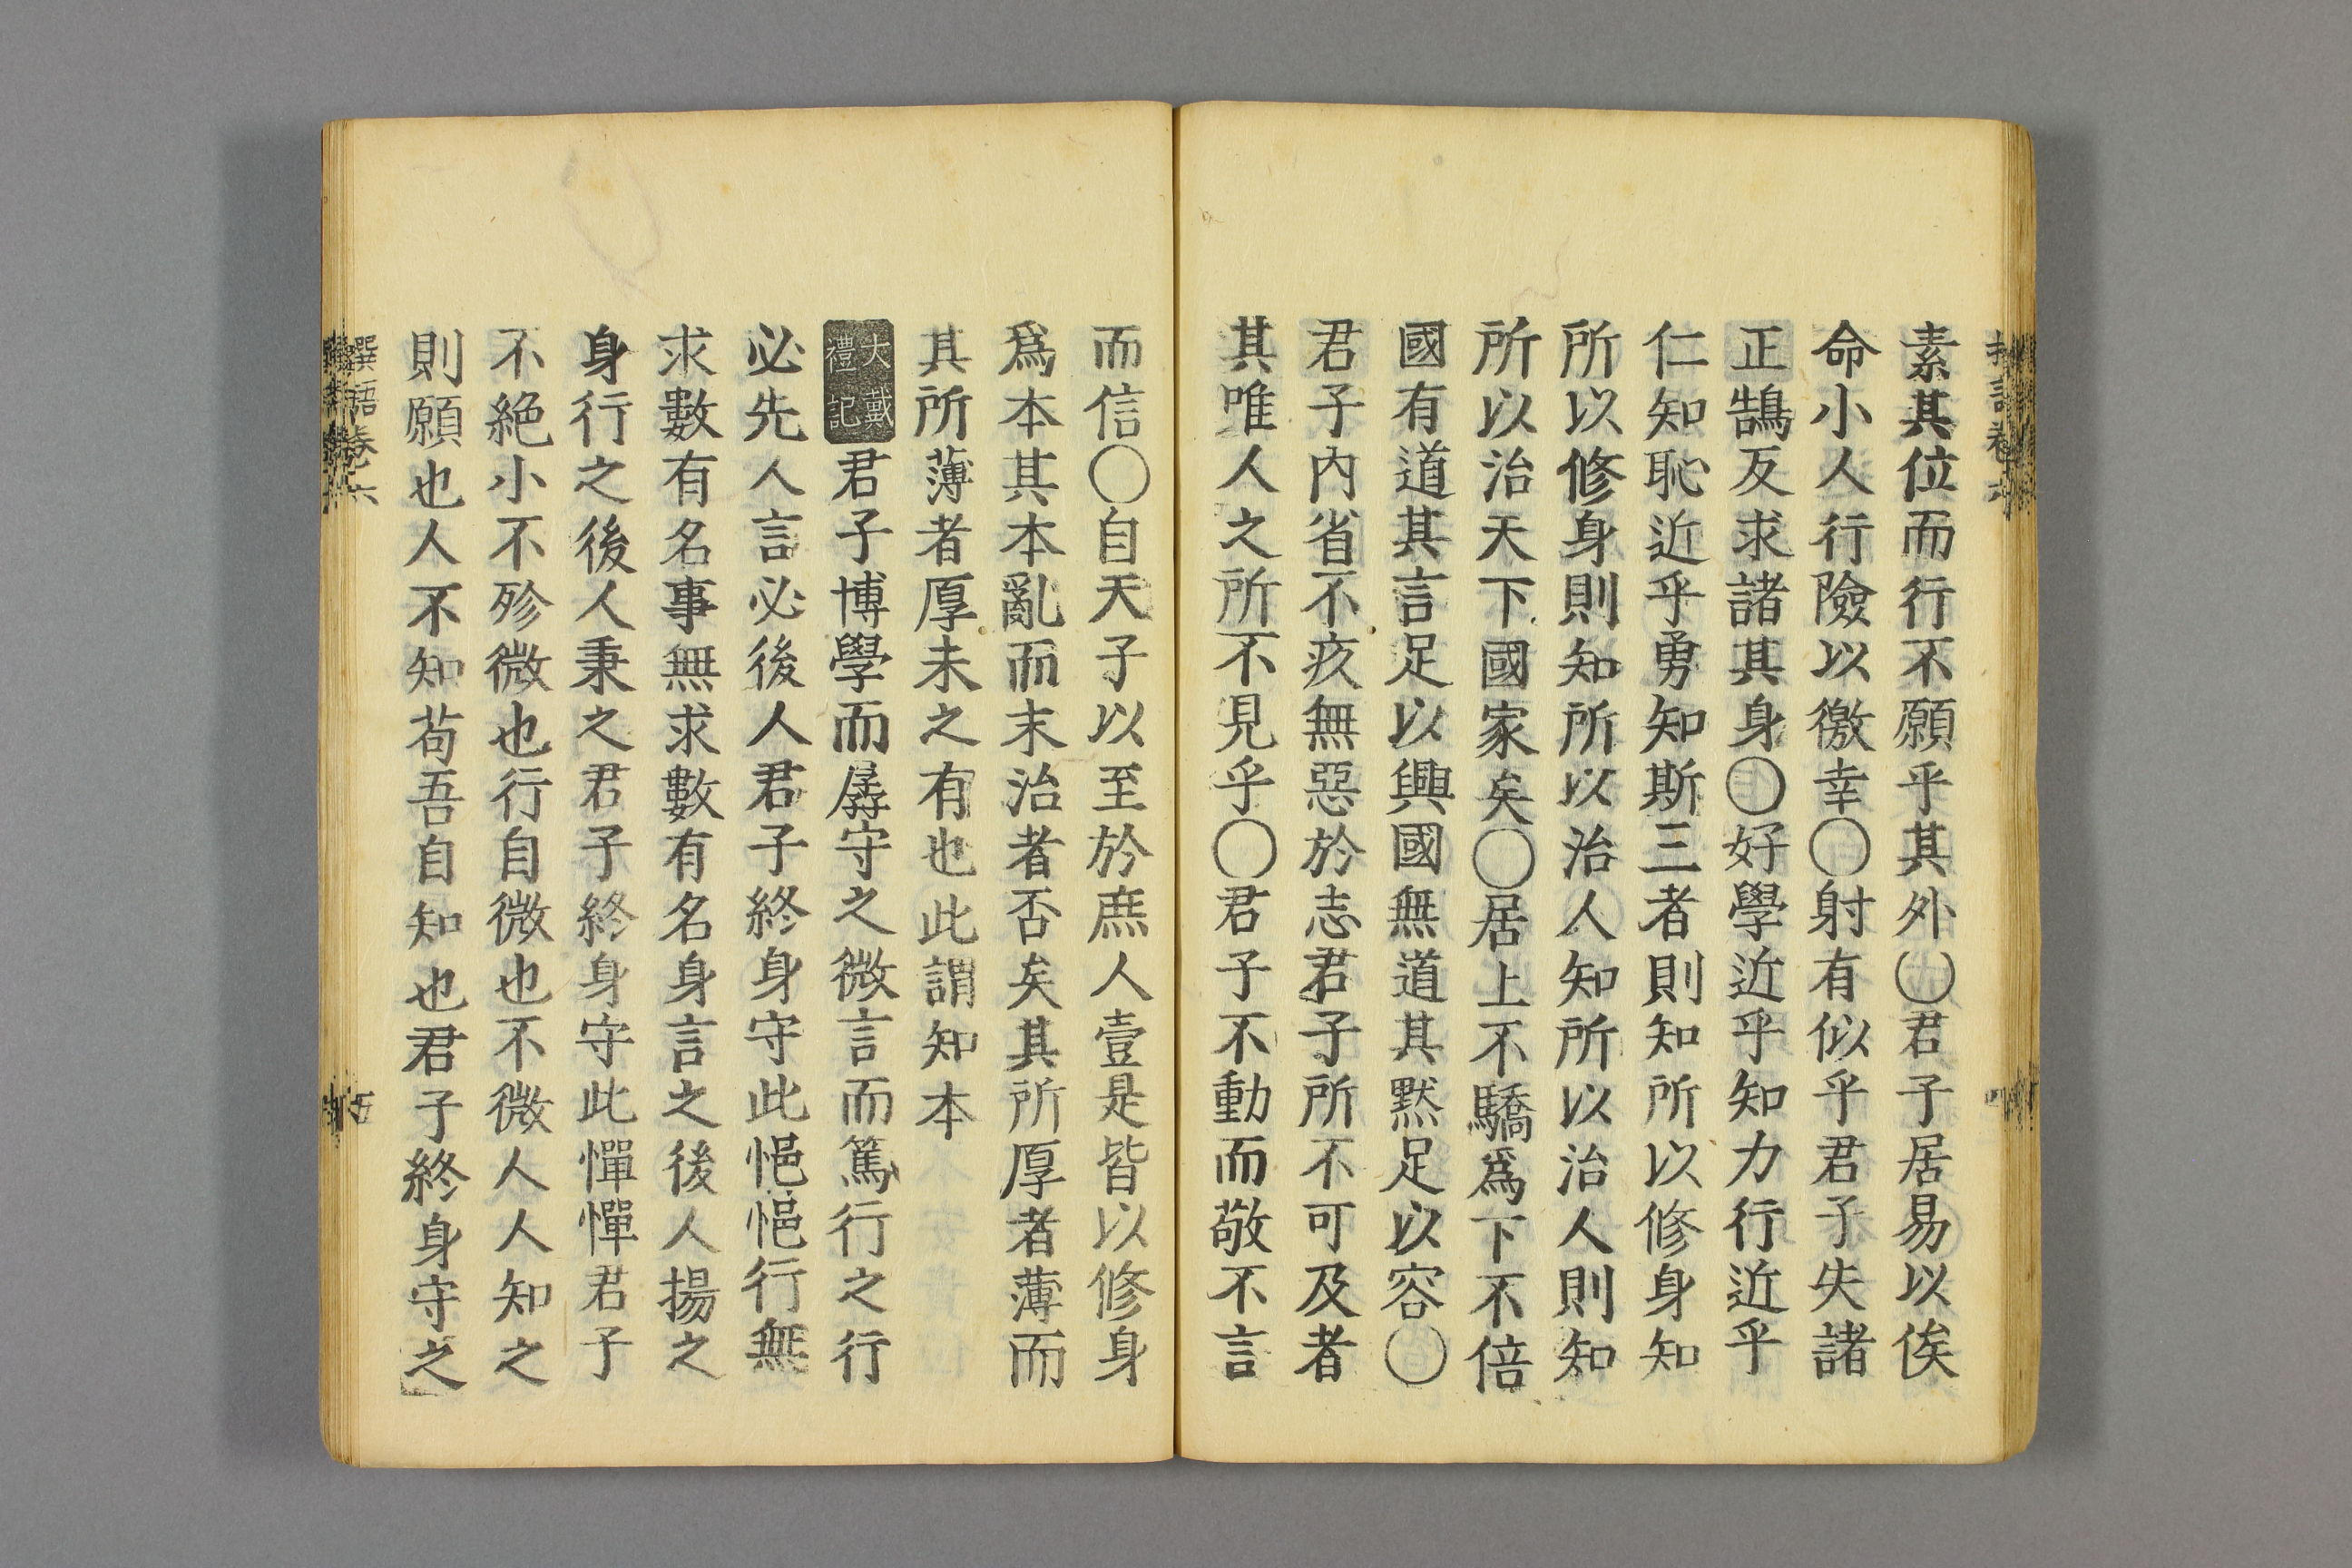 素其位而行不願乎其外〇君子居易以俟
命小人行險以徼幸〇射有似乎君子失諸
正鵠反求諸其身〇好學近乎知力行近乎
仁知恥近乎勇知斯三者則知所以修身知
所以修身則知所以治人知所以治人則知
所以治天下國家矣〇居上不驕爲下不倍
國有道其言足以興國無道其黙足以容〇
君子內省不疚無惡於志君子所不可及者
其唯人之所不見乎〇君子不動而敬不言
而信〇自天子以至於庶人壹是皆以修身
爲本其本亂而末治者否矣其所厚者薄而
其所薄者厚未之有也此謂知本
大戴禮記君子博學而孱守之微言而篤行之行
必先人言必後人君子終身守此悒悒行無
求數有名事無求數有名身言之後人揚之
身行之後人秉之君子終身守此憚憚君子
不絶小不殄微也行自微也不微人人知之
則願也人不知苟吾自知也君子終身守之
撰語卷六
五